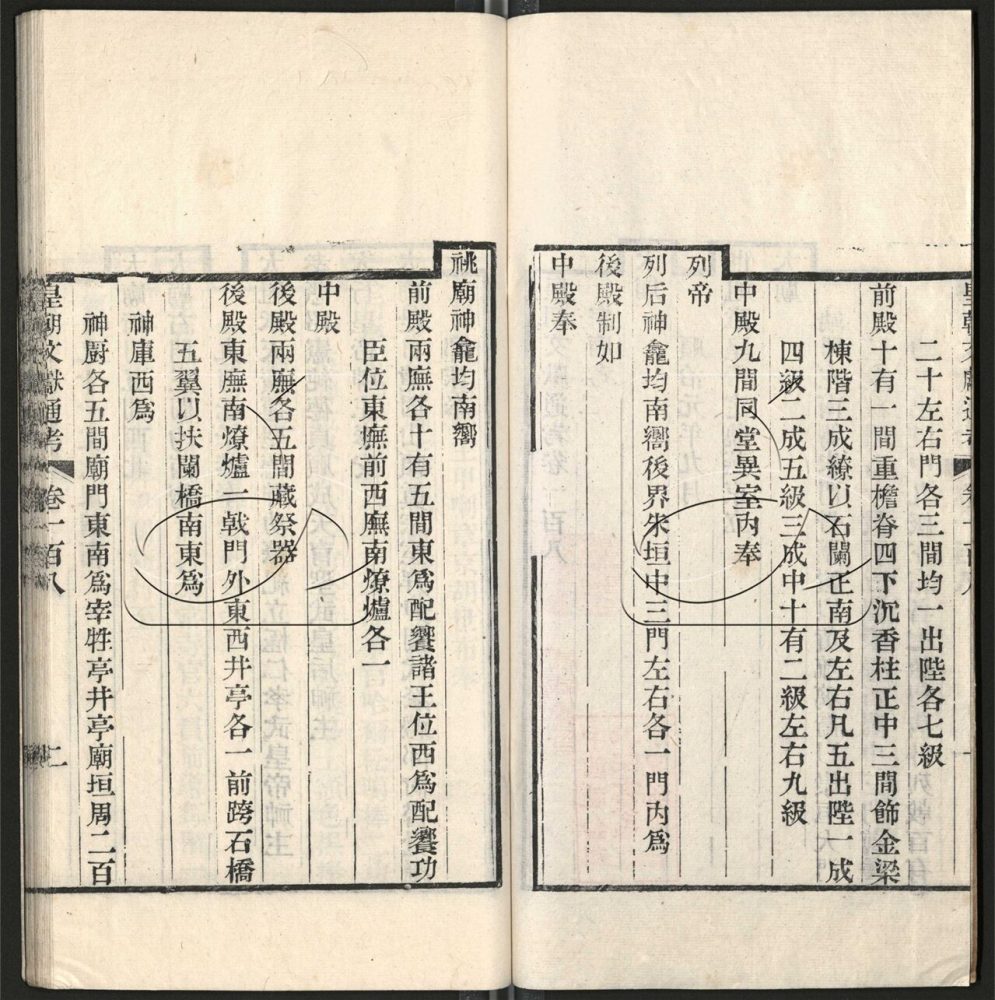 二十左右門各三間均一出陛各七級
前殿十有一間重檐脊四下沉香柱正中三間飾金梁
棟階三成繚以石闌正南及左右凡五出陛一成
四級二成五級三成中十有二級左右九級
中殿九間同堂異室內奉
列帝
列后神龕均南嚮後界朱垣中三門左右各一門內爲
後殿制如
中殿奉
祧廟神龕均南嚮
前殿兩廡各十有五間東爲配饗諸王位西爲配饗功
臣位東廡前西廡南燎爐各一
中殿
後殿兩廡各五間藏祭器
後殿東廡南燎爐一戟門外東西井亭各一前跨石橋
五翼以扶闌橋南東爲
神庫西爲
神厨各五間廟門東南爲宰牲亭井亭廟垣周二百
皇朝文獻通考 卷一百八 二